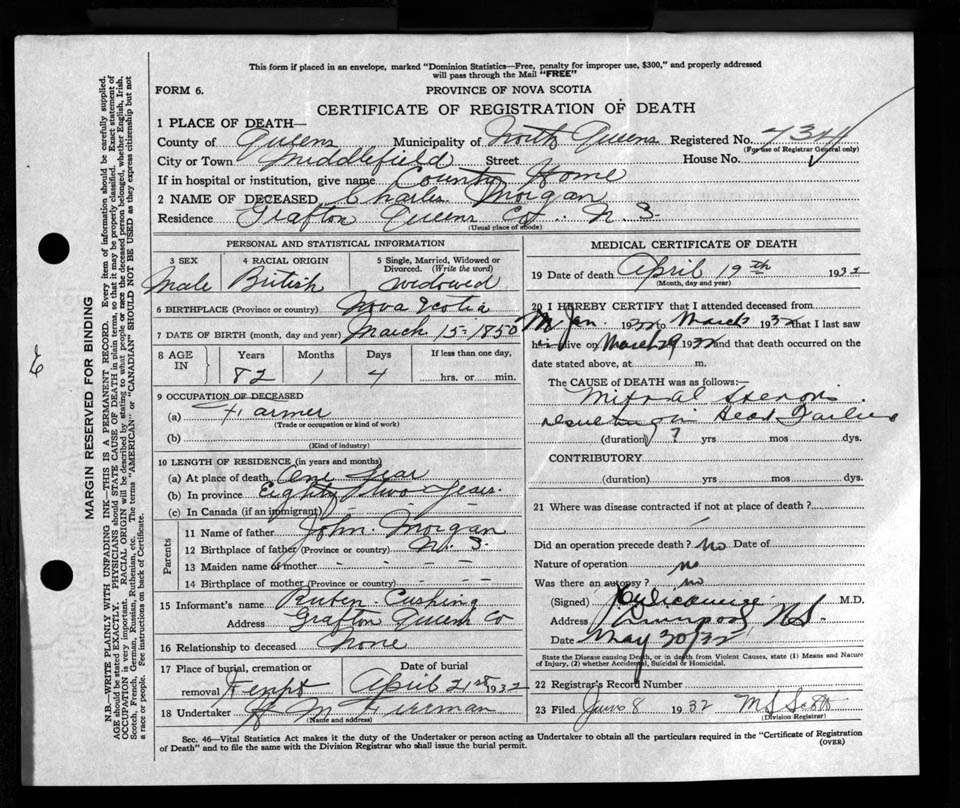 This form if placed in an envelope, marked "Dominion Statistics—Free, penalty for improper use, $300," and properly addressed
will pass through the Mail "FREE"
FORM 6.
PROVINCE OF NOVA SCOTIA
CERTIFICATE OF REGISTRATION OF DEATH
1 PLACE OF DEATH—
County of Queens Municipality of North Queens Registered No. 7344
(For use of Registrar General only)
City or Town Middlefield Street House No.
If in hospital or institution, give name County Home
2 NAME OF DECEASED Charles Morgan
Residence Grafton Queens Co. N. S.
(Usual place of abode)
PERSONAL AND STATISTICAL INFORMATION
3 SEX 4 RACIAL ORIGIN 5 Single, Married, Widowed or Divorced. (Write the word)
Male British widowed
6 BIRTHPLACE (Province or country) Nova Scotia
7 DATE OF BIRTH (month, day and year) March 15- 1850
8 AGE IN Years Months Days If less than one day,
82 1 4 hrs. or min.
9 OCCUPATION OF DECEASED
(a) Farmer
(Trade or occupation or kind of work)
(b)
(Kind of industry)
10 LENGTH OF RESIDENCE (in years and months)
(a) At place of death One year
(b) In province Eighty two years.
(c) In Canada (if an immigrant)
Parents
11 Name of father John Morgan
12 Birthplace of father (Province or country) N. S.
13 Maiden name of mother - - - - -
14 Birthplace of mother (Province or country) - - - -
15 Informant's name Ruben Cushing
Address Grafton Queens Co
16 Relationship to deceased None
17 Place of burial, cremation or removal Date of burial
April 21st 1932
18 Undertaker
(Name and address)
MEDICAL CERTIFICATE OF DEATH
19 Date of death April 19th 1932
(Month, day and year)
20 I HEREBY CERTIFY that I attended deceased from
Jan. 1932 to March 1932 that I last saw
h alive on March 29 1932 and that death occurred on the
date stated above, at m.
The CAUSE of DEATH was as follows:—
Mitral Stenosis
resulting in Heart Failure
(duration) ? yrs mos dys.
CONTRIBUTORY
(duration) yrs mos dys.
21 Where was disease contracted if not at place of death?
Did an operation precede death? No Date of
Nature of operation no
Was there an autopsy? no
(Signed) M.D.
Address Liverpool N.S.
Date May 30/32
State the Disease causing Death, or in death from Violent Causes, state (1) Means and Nature
of Injury, (2) whether Accidental, Suicidal or Homicidal.
22 Registrar's Record Number
23 Filed June 8 1932 M S Scott
(Division Registrar)
Sec. 46—Vital Statistics Act makes it the duty of the Undertaker or person acting as Undertaker to obtain all the particulars required in the "Certificate of Registration
of Death" and to file the same with the Division Registrar who shall issue the burial permit.
(OVER)
MARGIN RESERVED FOR BINDING
N.B.—WRITE PLAINLY WITH UNFADING INK—THIS IS A PERMANENT RECORD. Every item of information should be carefully supplied.
AGE should be stated EXACTLY. PHYSICIANS should STATE CAUSE OF DEATH in plain terms, so that it may be properly classified. Exact statement of
OCCUPATION is very important. RACIAL ORIGIN will be described by stating to what people or race the deceased person belonged, whether English, Irish,
Scotch, French, German, Russian, Ruthenian, etc. The terms "AMERICAN" or "CANADIAN" SHOULD NOT BE USED as they express citizenship but not
a race or people. See instructions on back of Certificate.